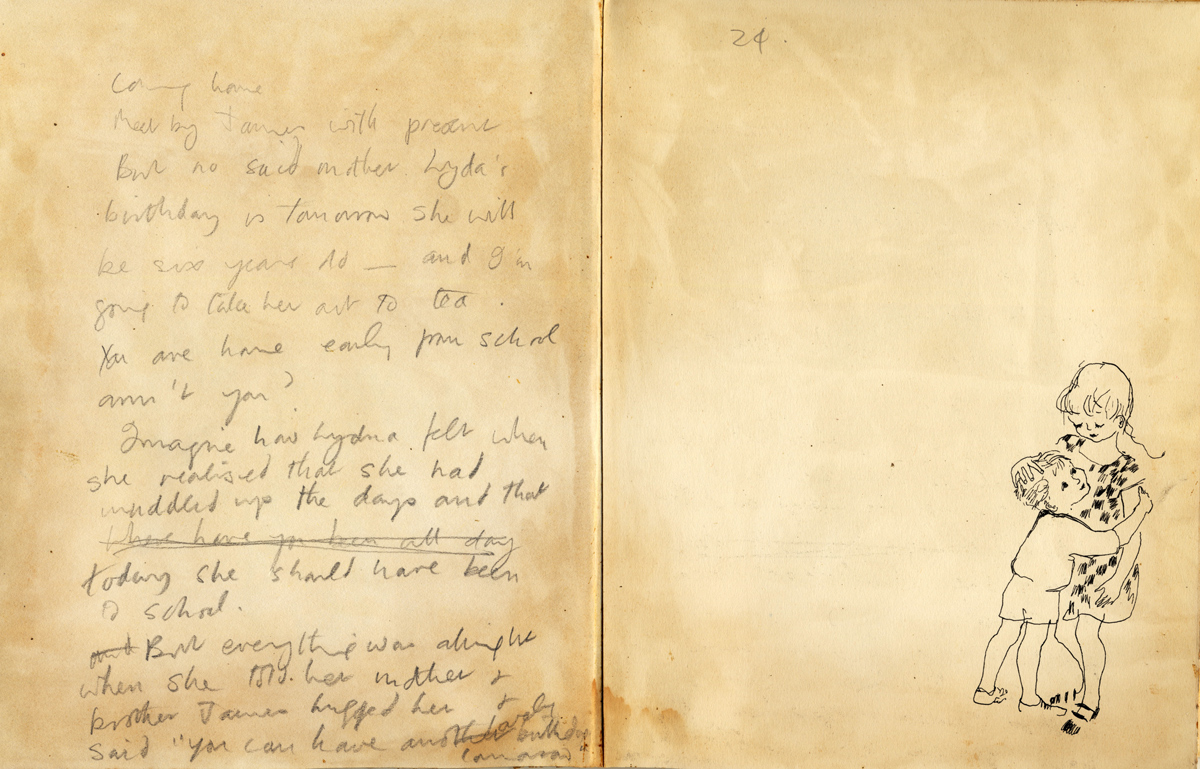 Coming home
Meet by James with present
But no said mother Lyda's
birthday is tomorrow she will
be six years old — and I'm
going to take her out to tea.
You are home early from school
arn't you?
Imagine how Lydia felt when
she realised that she had
muddled up the days and that
Where have you been all day
today she should have been
to school.
and But everything was alright
when she told her mother &
brother James hugged her &
said "You can have another lovely birthday
tomorrow"
24.